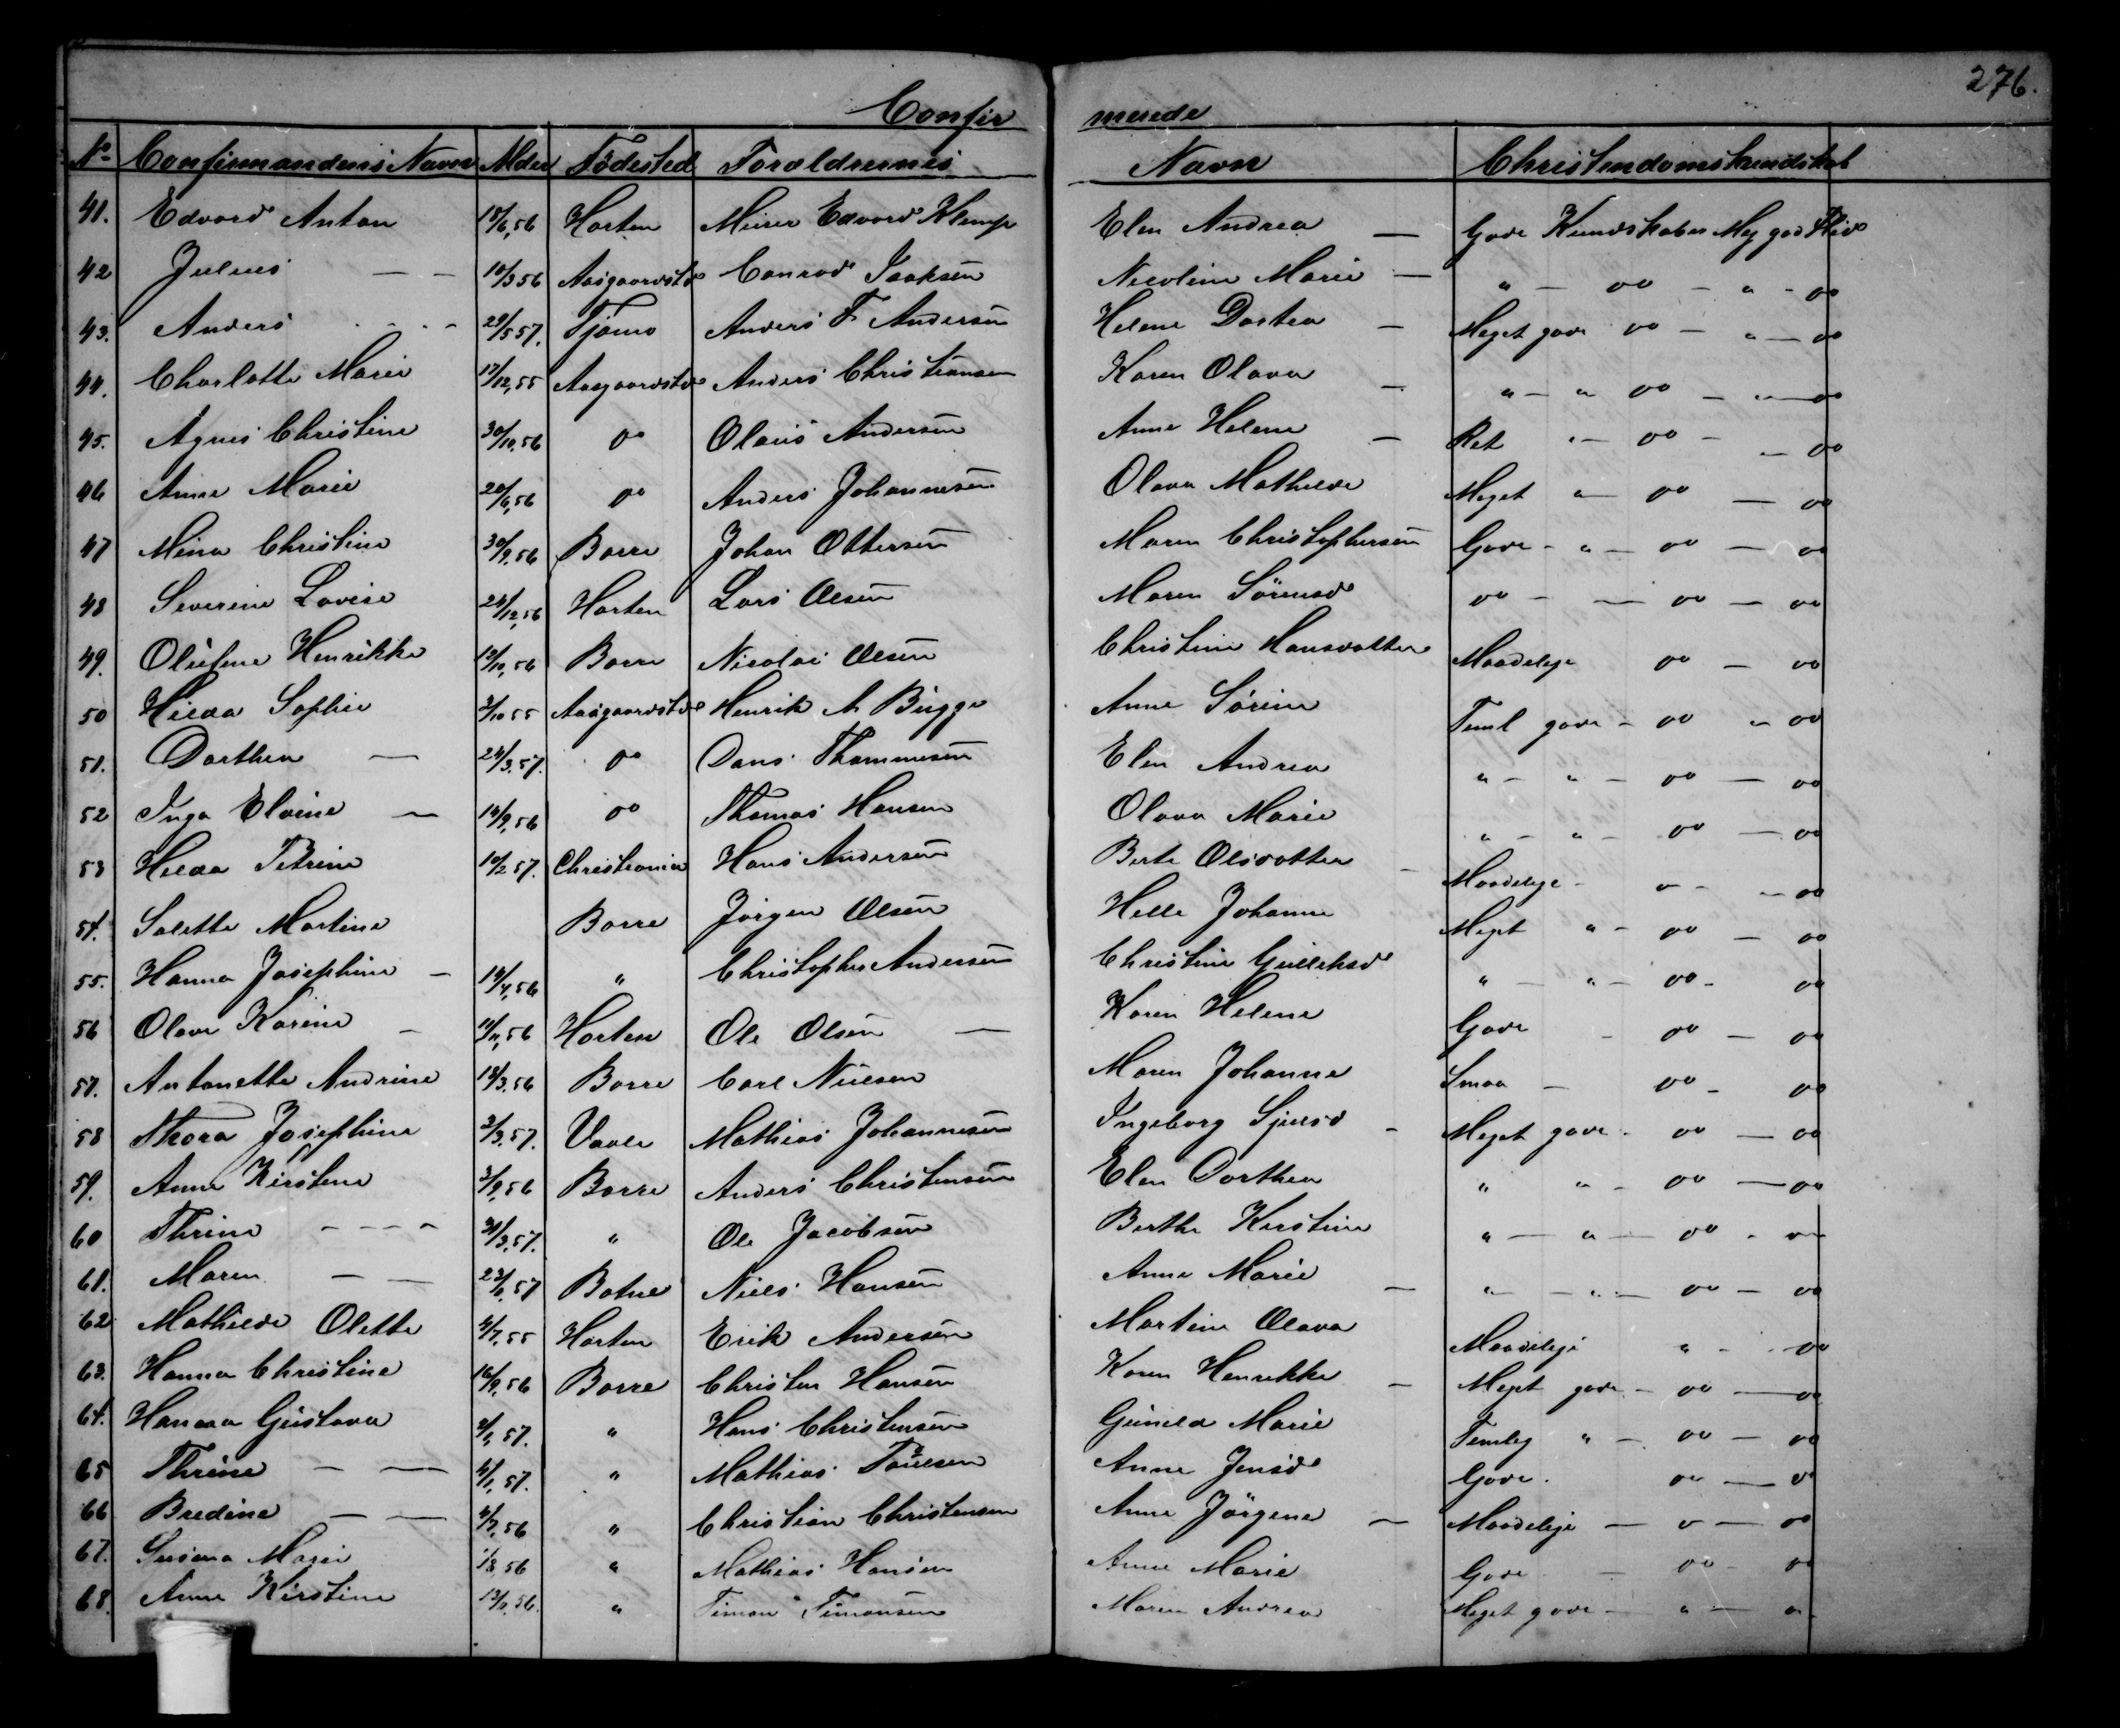 276.
Confir merede
No Confirmandens Navn Alder Födested Forældrernes Navn Christendomskundskab
41. Edvard Anton 18/6,56 Horten Murer Edvard Klemp Elen Andrea — Gode Kundskaber Meg god Flid
42 Julius — — 10/3 56 Aasgaardstd Conrad Isaksen Nicoline Marie — " — do — " - do
43. Anders - - - 29/5 57. Tjömö Anders F Andersen Helene Dortea — Meget gode do — " — do
44. Charlotte Marie 17/12,55 Aasgaardstd Anders Christiansen Karen Olava — " — " do — " — do
45. Agnes Christine 30/10,56 do Olaus Andersen Anne Helene — Ret " — do — — do
46 Anne Marie 20/6,56 do Anders Johannesen Olava Mathilde Meget " — do — do
47 Mina Christine 30/9,56 Borre Johan Ottersen Maren Christophersen Gode - " — do — do
48 Severine Lovise 24/12,56 Horten Lars Olsen Maren Sörensd do - — do — do
49. Olufine Henrikke 12/10,56 Borre Nicolai Olsen Christine Hansdatter Maadelige do — do
50 Hilda Sophie 2/10 55 Aasgaardstd Henrik A Bugge Anne Sörine Teml gode - do " do
51. Dorthea — 24/3.57. do Dans Thommesen Elen Andrea " — " — do — do
52 Inga Elvine — 14/9,56 do Thomas Hansen Olava Marie " — " — do — do
53 Hilda Petrine 10/2 57. Christiania Hans Andersen Berte Olsdatter - Maadelige - do - - do
54. Salette Martine Borre Jörgen Olsen Helle Johanne Meget " - do — do
55. Hanna Josephine — 14/4,56 " Christopher Andersen Christine Gulliksd " — " — do - do
56 Olava Karine — 11/11,56 Horten Ole Olsen — Karen Helene Gode - do — do
57. Antonette Andrine 18/3.56 Borre Carl Nilsen Maren Johanne Smaa — do - do
58 Thora Josephine 2/3.57. Vaale Mathias Johannesen Ingeborg Sjulsd - Meget gode - do — do
59. Anne Kirstine 3/9,56 Borre Anders Christensen Elen Dorthea " " - do — do
60 Thrine - - - - 31/3,57. " Ole Jacobsen Berthe Kirstine " — " — do - do
61. Maren — — 22/6,57 Botne Niels Hansen Anne Marie — " — " — do — do
62 Mathilde Olette 4/7,55 Horten Erik Andersen Martine Olava Maadelige " - - do
63. Hanna Christine 16/9,56 Borre Christen Hansen Karen Henrikke — Meget gode - do — do
64. Hanna Gustava 2/1,57. " Hans Christensen Gunild Marie Temlig " — do — do
65 Thrine — — 4/1,57. " Mathias Paulsen Anne Jensd Gode. do — do
66 Bredine — — 4/7,56 " Christian Christensen Anne Jörgine — Maadelige — do — do
67. Susana Marie 1/8 56 " Mathias Hansen Anne Marie Gode — do - do
68. Anne Kirstine 13/1,56. " Timan Timansen Maren Andrea Meget gode — " — "